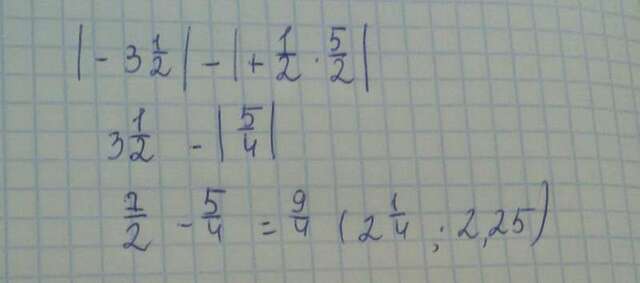 |- 3 1/2| - |+ 1/2 · 5/2|
3 1/2 - |5/4|
7/2 - 5/4 = 9/4 (2 1/4 ; 2,25)